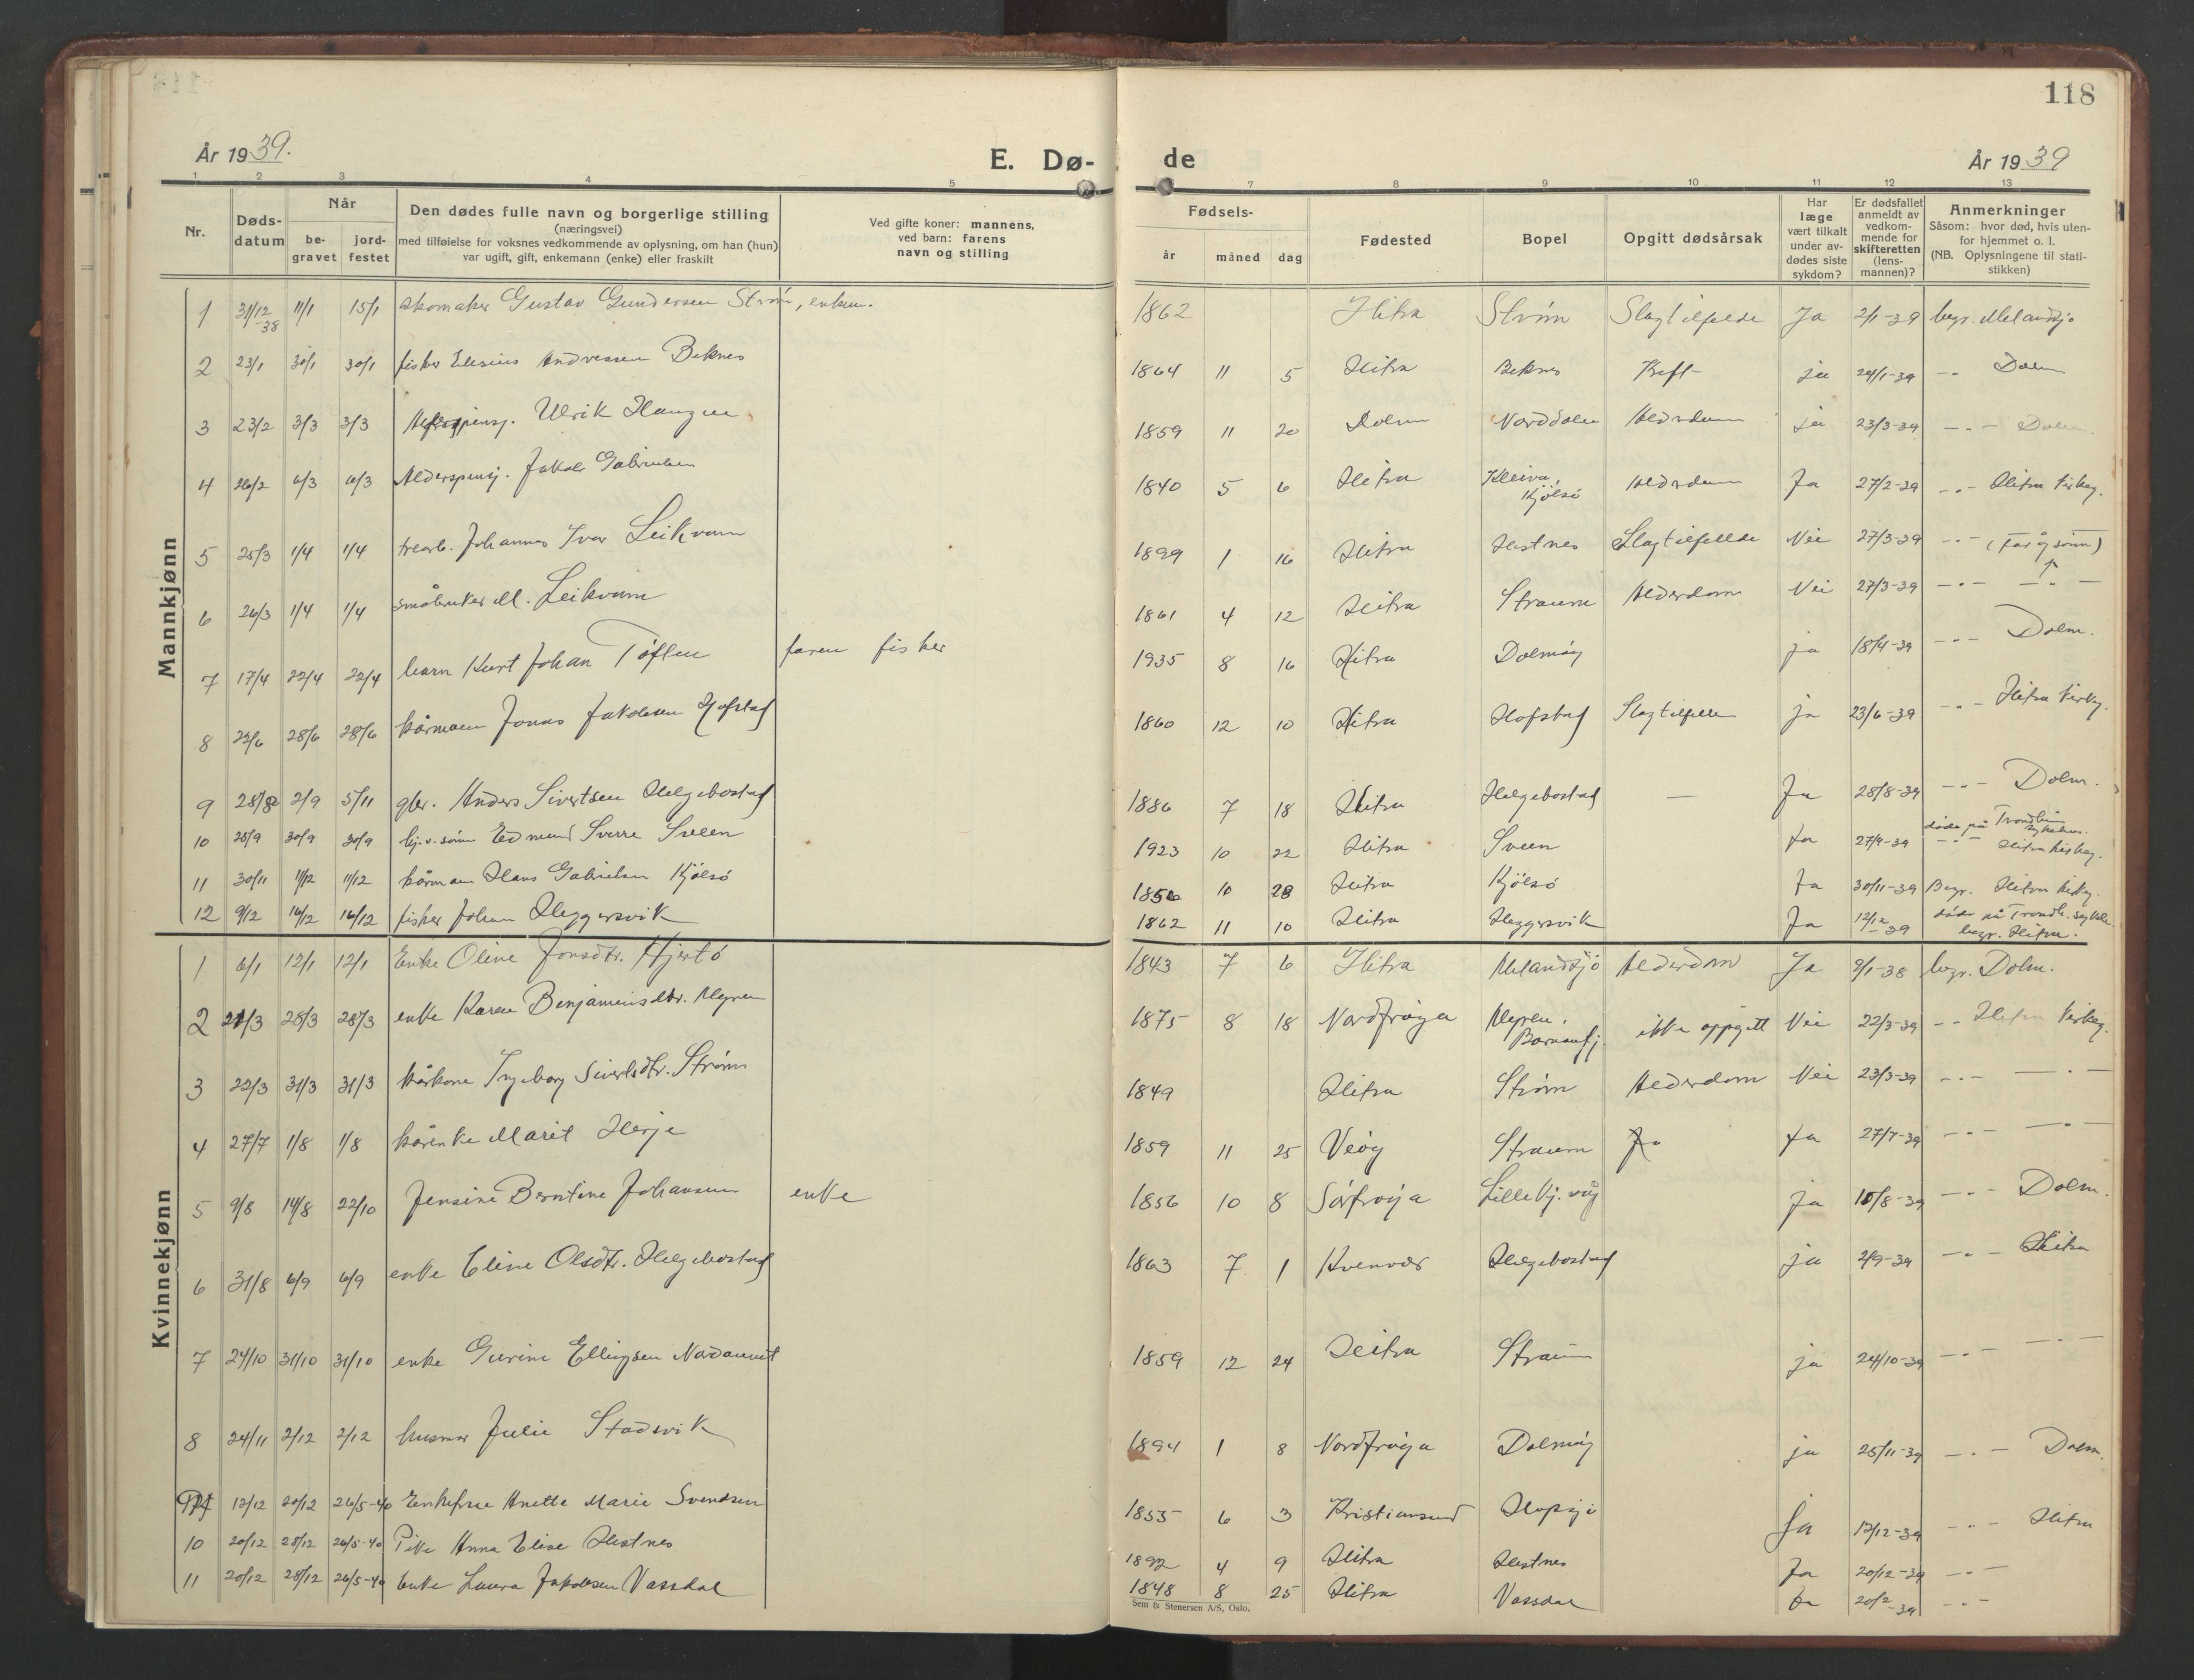 118
År 1939.
E. Dø-
de
År 1939
1 2 3 4 5 6 7 8 9 10 11 12 13
Nr.
Døds-
datum
Når
be-
gravet
jord-
festet
Den dødes fulle navn og borgerlige stilling
(næringsvei)
med tilføielse for voksnes vedkommende av oplysning, om han (hun)
var ugift, gift, enkemann (enke) eller fraskilt
Ved gifte koner: mannens,
ved barn: farens
navn og stilling
Fødsels-
år måned dag
Fødested
Bopel
Opgitt dødsårsak
Har
læge
vært tilkalt
under av-
dødes siste
sykdom?
Er dødsfallet
anmeldt av
vedkom-
mende for
skifteretten
(lens-
mannen)?
Anmerkninger
Såsom: hvor død, hvis uten-
for hjemmet o. l.
(NB. Oplysningene til stati-
stikken)
Mannkjønn
1 31/12-38 11/1 15/1 skomaker Gustav Gundersen Strøm, enkem. 1862 Hitra Strøm Slagtilfelde Ja 2/1-39 begr. Melandsjø
2 23/1 30/1 30/1 fisker Elesius Andreasen Beknes 1864 11 5 Hitra Beknes Kreft ja 24/1-39 -"- Dolm
3 23/2 3/3 3/3 Alderspensj. Ulrik Haugen 1859 11 20 Dolm Norddolm Alderdom ja 23/3-39 -"- Dolm.
4 26/2 6/3 6/3 Alderspensj. Jakob Gabrielsen 1840 5 6 Hitra Kleiva, Kjølsø Alderdom Ja 27/2-39 -"- Hitra kirkeg.
5 25/3 1/4 1/4 trearb. Johannes Ivar Leikvam 1899 1 16 Hitra Hestnes Slagtilfellde Nei 27/3-39 -"- (Far og sønn)
6 26/3 1/4 1/4 småbruker M. Leikvam 1861 4 12 Hitra Straum Alderdom Nei 27/3-39 -"- -"-
7 17/4 22/4 22/4 barn Kurt Johan Tøften faren fisker 1935 8 16 Hitra Dolmøy ja 18/4-39 -"- Dolm.
8 22/6 28/6 28/6 kårmann Jonas Jakobsen Hofstad 1860 12 10 Hitra Hofstad Slagtilfelle ja 23/6-39 -"- Hitra kirkeg.
9 28/8 2/9 5/11 gbr. Anders Sivertsen Helgebostad 1886 7 18 Hitra Helgebostad — Ja 28/8-39 -"- Dolm.
10 25/9 30/9 30/9 hj.v. sønn Edmund Sverre Sveen 1923 10 22 Hitra Sveen Ja 27/9-39 døde på Trondheim sykehus. -"- Hitra kirkeg.
11 30/11 11/12 11/12 kårmann Hans Gabrielsen Kjølsø 1856 10 28 Hitra Kjølsø Ja 30/11-39 Begr. Hitra kirkeg.
12 9/12 16/12 16/12 fisker Johan Heggersvik 1862 11 10 Hitra Heggersvik Ja 12/12-39 døde på Trondh. sykeh. begr. Hitra.
Kvinnekjønn
1 6/1 12/1 12/1 Enke Oline Jonsdtr. Hjertø 1843 7 6 Hitra Melandsjø Alderdom Ja 9/1-38 begr. Dolm.
2 21/3 28/3 28/3 enke Karen Benjaminsdtr. Myren 1875 8 18 Nordfrøya Myren, Barmanfj. ikke oppgitt Nei 22/3-39 -"- Hitra kirkeg.
3 22/3 31/3 31/3 kårkone Ingeborg Sivertsdtr. Strøm 1849 Hitra Strøm Alderdom Nei 23/3-39 -"- -"-
4 27/7 1/8 1/8 kårenke Marit Herje 1859 11 25 Veøy Straum Ja 27/7-39 -"- -"-
5 9/8 14/8 22/10 Jensine Berntine Johansen enke 1856 10 8 Sørfrøya Lille Kj. våg ja 10/8-39 -"- Dolm.
6 31/8 6/9 6/9 enke Eline Olsdtr. Helgebostad 1863 7 1 Kvenvær Helgebostad ja 2/9-39 -"- Hitra
7 24/10 31/10 31/10 enke Gurine Ellingsen 1859 12 24 Hitra Straum ja 24/10-39 -"- -"-
8 24/11 2/12 2/12 husmor Julie Stadsvik 1894 1 8 Nordfrøya Dolmøy ja 25/11-39 -"- Dolm.
12/12 20/12 26/5-40 Enkefrue Anette Marie Svendsen 1855 6 3 Kristiansund Hopsjø Ja 13/12-39 -"- Hitra
10 20/12 28/12 26/5-40 Pike Anna Elise Hestnes 1892 4 9 Hitra Hestnes Ja 20/12-39 -"-
11 20/12 28/12 26/5-40 Enke Laura Jakobsen Vassdal 1848 8 25 Hitra Vassdal Ja 20/2-39 -"-
Sem & Stenersen A/S, Oslo.